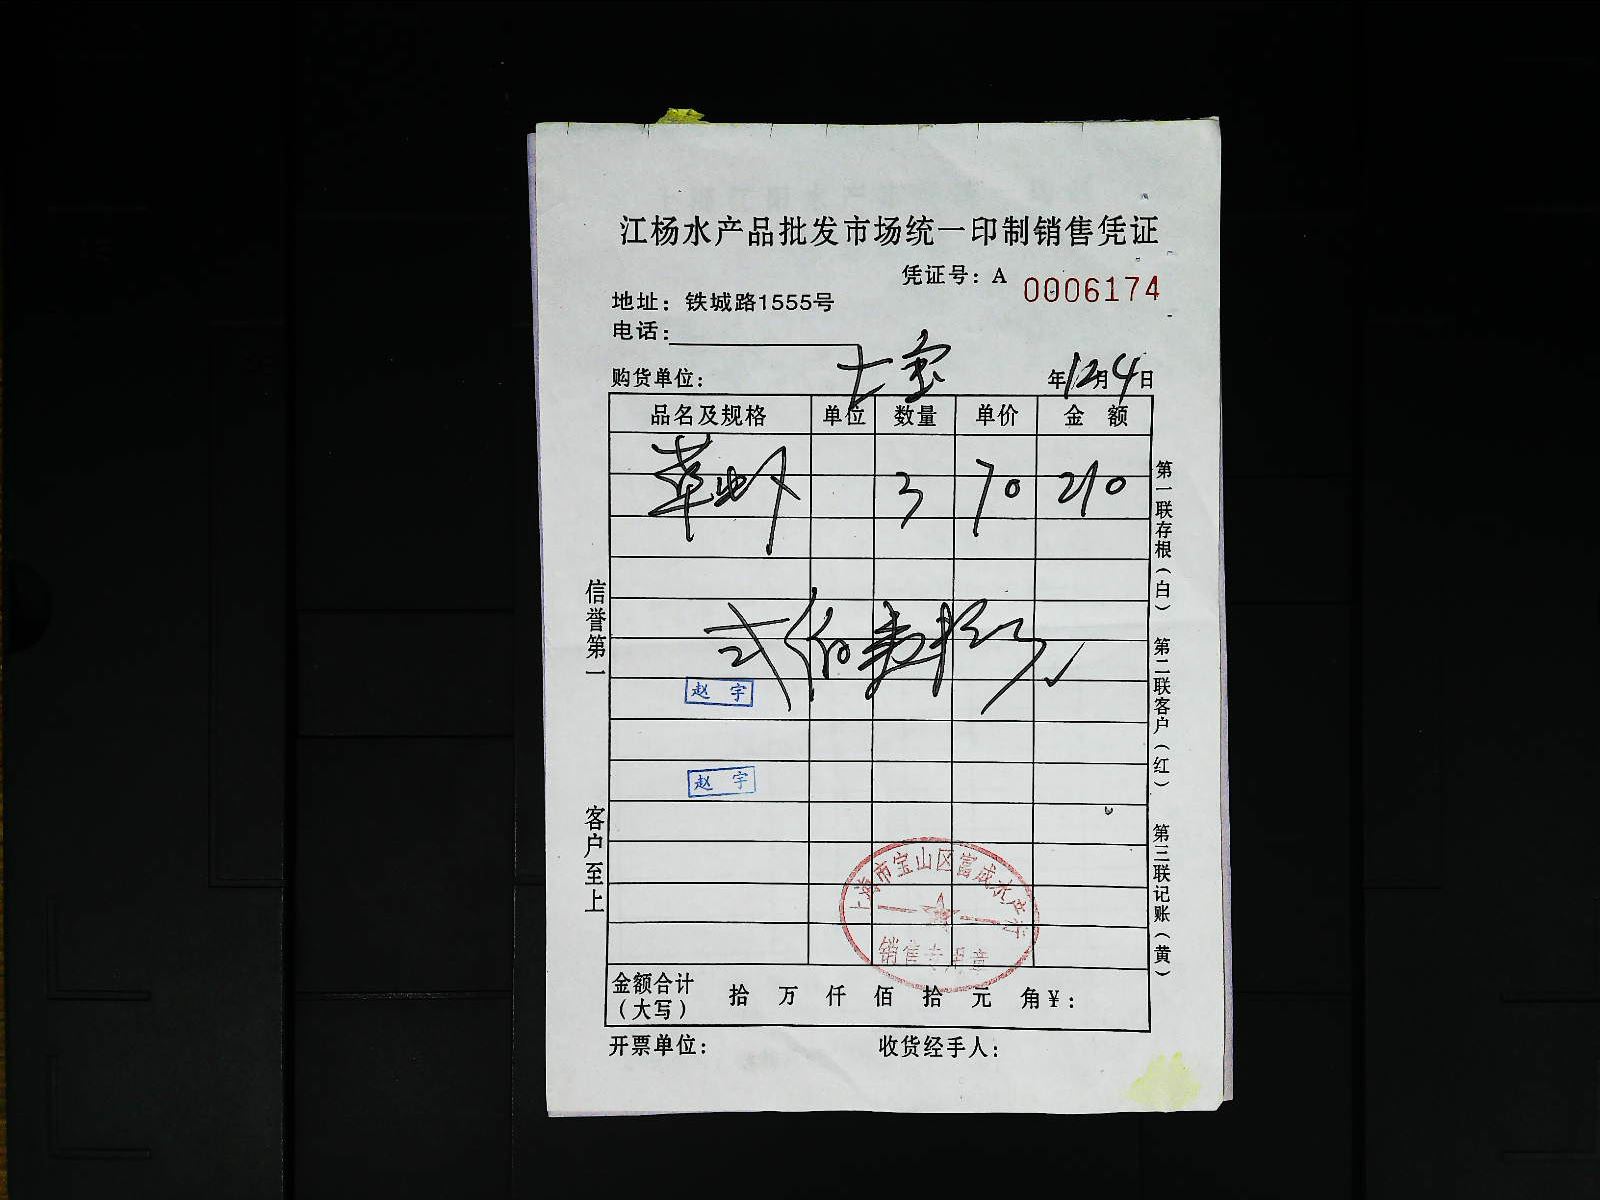 江杨水产品批发市场统一印制销售凭证
凭证号：A 0006174
地址：铁城路1555号
电话：
购货单位：七宝 年12月4日
品名及规格 单位 数量 单价 金额
草虾 3 70 210
弍佰壹拾元
赵宇
赵宇
上海市宝山区富成水产行
销售专用章
金额合计（大写） 拾 万 仟 佰 拾 元 角 ￥：
开票单位： 收货经手人：
信誉第一
客户至上
第一联存根（白）
第二联客户（红）
第三联记账（黄）